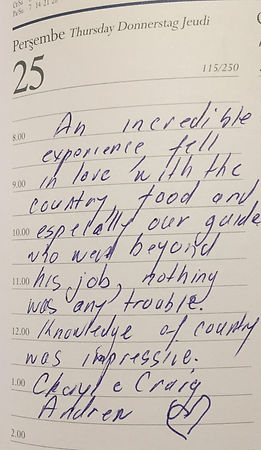 Perşembe Thursday Donnerstag Jeudi
25
115/250
8.00 An incredible
experience fell
9.00 in love with the
country food and
10.00 especially our guide
who went beyond
11.00 his job, nothing
was any trouble.
12.00 Knowledge of country
was impressive.
1.00 Craig
2.00